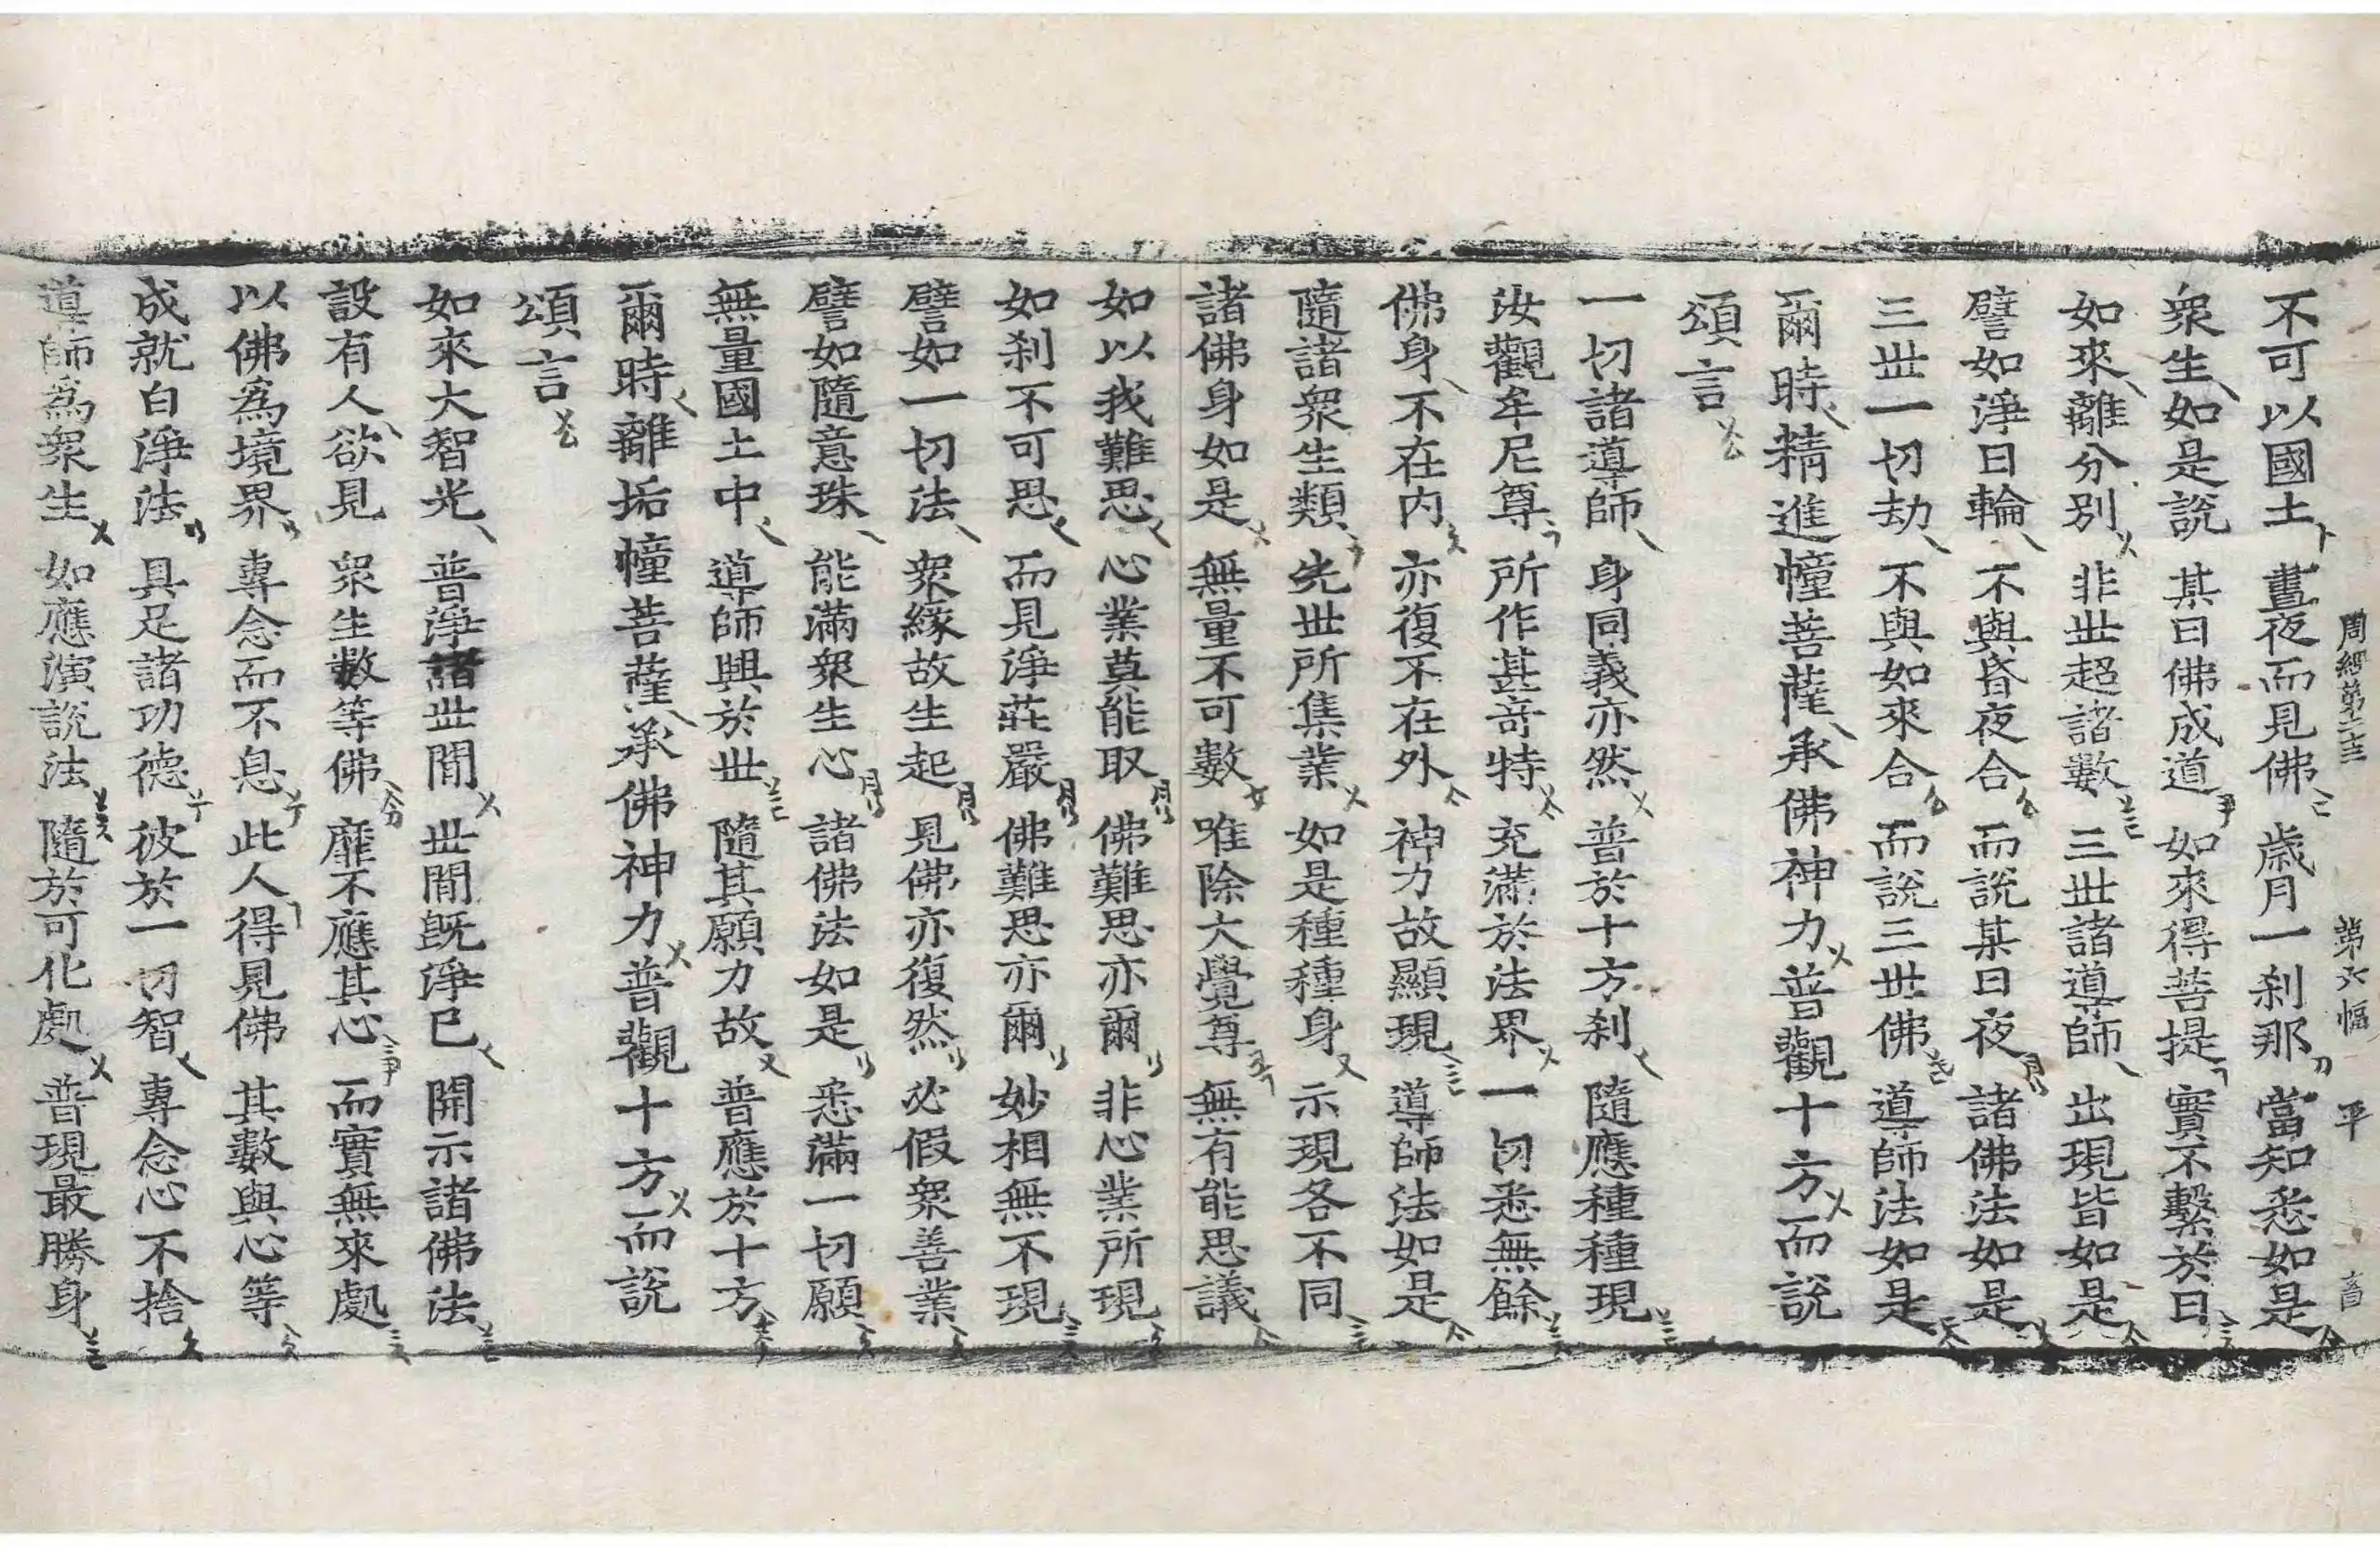 周經第二十三 第六幅 平
不可以國土 晝夜而見佛 歲月一剎那 當知悉如是
衆生如是說 某日佛成道 如來得菩提 實不繫於日
如來離分別 非世超諸數 三世諸導師 出現皆如是
譬如淨日輪 不與昏夜合 而說某日夜 諸佛法如是
三世一切劫 不與如來合 而說三世佛 導師法如是
爾時精進幢菩薩承佛神力普觀十方而說
頌言
一切諸導師 身同義亦然 普於十方刹 隨應種種現
汝觀牟尼尊 所作甚奇特 充滿於法界 一切悉無餘
佛身不在内 亦復不在外 神力故顯現 導師法如是
隨諸衆生類 先世所集業 如是種種身 示現各不同
諸佛身如是 無量不可數 唯除大覺尊 無有能思議
如以我難思 心業莫能取 佛難思亦爾 非心業所現
如刹不可思 而見淨莊嚴 佛難思亦爾 妙相無不現
譬如一切法 衆緣故生起 見佛亦復然 必假衆善業
譬如隨意珠 能滿衆生心 諸佛法如是 悉滿一切願
無量國土中 導師興於世 隨其願力故 普應於十方
爾時離垢幢菩薩承佛神力普觀十方而說
頌言
如來大智光 普淨諸世間 世間旣淨已 開示諸佛法
設有人欲見 衆生數等佛 靡不應其心 而實無來處
以佛爲境界 專念而不息 此人得見佛 其數與心等
成就白淨法 具足諸功德 彼於一切智 專念心不捨
導師爲衆生 如應演說法 隨於可化處 普現最勝身